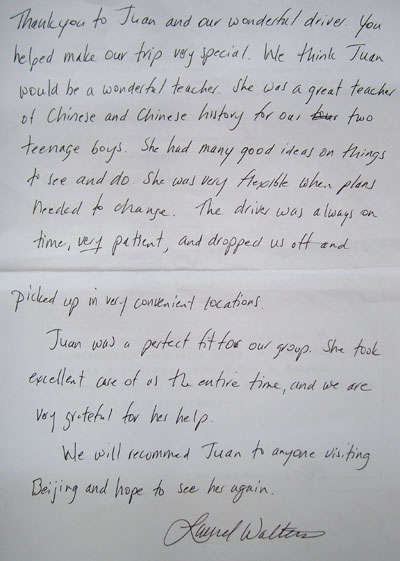 Thank you to Juan and our wonderful driver. You
helped make our trip very special. We think Juan
would be a wonderful teacher. She was a great teacher
of Chinese and Chinese history for our two
teenage boys. She had many good ideas on things
to see and do. She was very flexible when plans
needed to change. The driver was always on
time, very patient, and dropped us off and
picked up in very convenient locations.
Juan was a perfect fit for our group. She took
excellent care of us the entire time, and we are
very grateful for her help.
We will recommed Juan to anyone visiting
Beijing and hope to see her again.
Laurel Walters